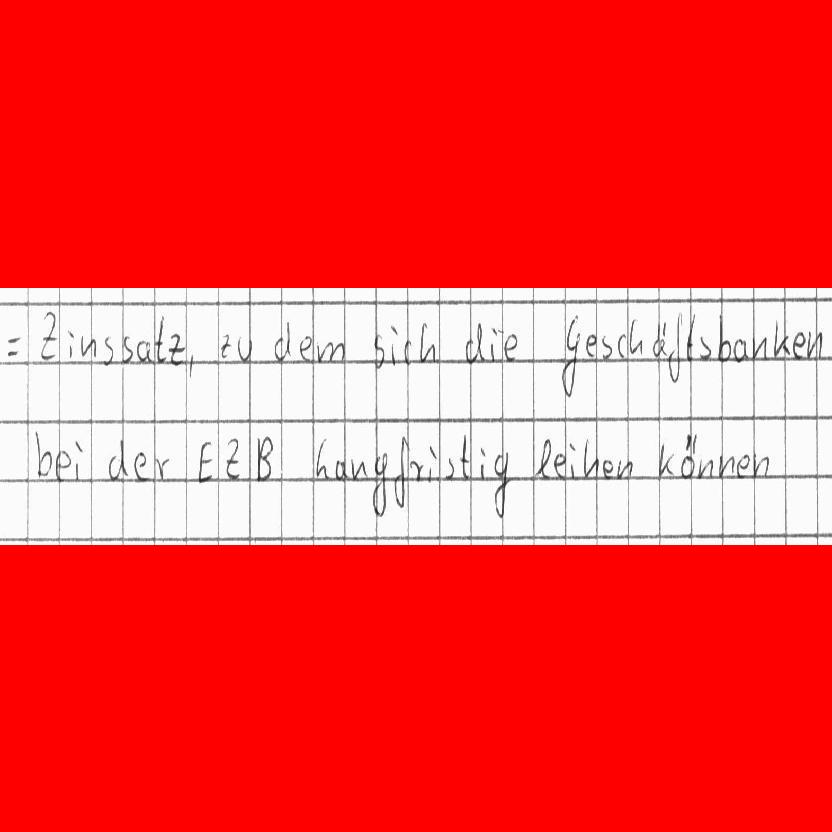 = Zinssatz, zu dem sich die Geschäftsbanken
bei der EZB hangfristig leihen können